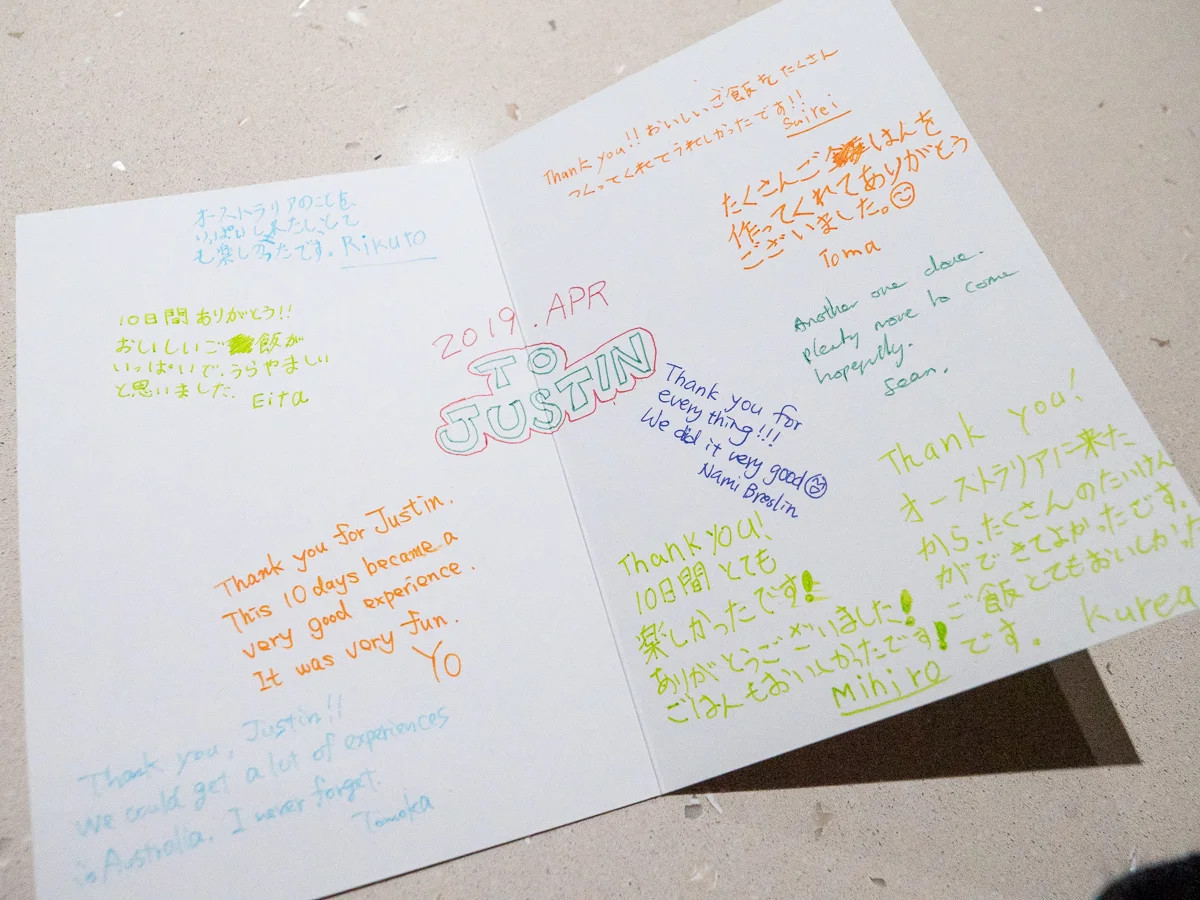 オーストラリアのことを、
いっぱいしれたし、とて
も楽しかったです。Rikuto
10日間ありがとう!!
おいしいご飯が
いっぱいで、うらやましい
と思いました。Eita
2019.APR
TO
JUSTIN
Thank you for Justin.
This 10 days became a
very good experience.
It was very fun.
Yo
Thank you, Justin!!
We could get a lot of experiences
in Australia. I never forget.
Tomoka
Thank you!! おいしいご飯をたくさん
つくってくれてうれしかったです!!
Suirei
たくさんごはんを
作ってくれてありがとう
ございました。
Toma
Another one done.
plenty more to come
hopefully.
Sean.
Thank you for
everything!!!
We did it very good
Nami Breslin
Thank you!
オーストラリアに来た
から、たくさんのたいけん
ができてよかったです。
ご飯とてもおいしかった
です。 Kurea
Thank you!
10日間とても
楽しかったです!
ありがとうございました!
ごはんもおいしかったです!
Mihiro